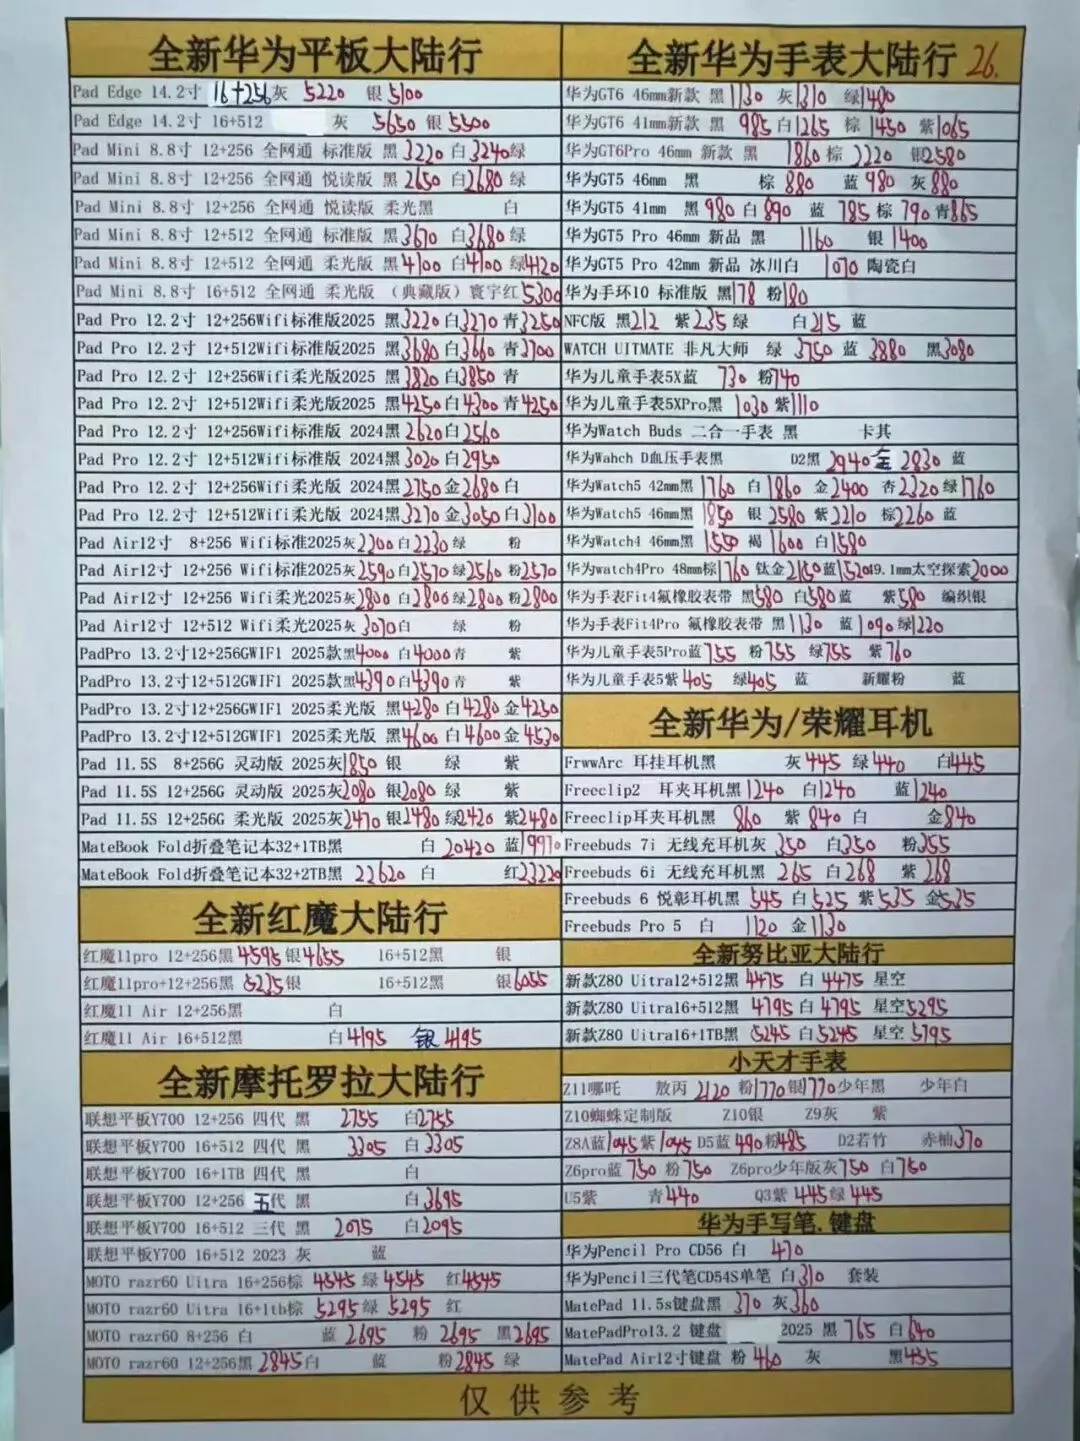 全新华为平板大陆行
Pad Edge 14.2寸 16+256灰 5220 银 5100
Pad Edge 14.2寸 16+512 灰 5650 银 5500
Pad Mini 8.8寸 12+256 全网通 标准版 黑3220 白3240绿
Pad Mini 8.8寸 12+256 全网通 悦读版 黑2650 白2680 绿
Pad Mini 8.8寸 12+256 全网通 悦读版 柔光黑 白
Pad Mini 8.8寸 12+512 全网通 标准版 黑3670 白3680绿
Pad Mini 8.8寸 12+512 全网通 柔光版 黑4100 白4100 绿4120
Pad Mini 8.8寸 16+512 全网通 柔光版 （典藏版）寰宇红5300
Pad Pro 12.2寸 12+256Wifi标准版2025 黑3220白3270青3250
Pad Pro 12.2寸 12+512Wifi标准版2025 黑3680白3660青3700
Pad Pro 12.2寸 12+256Wifi柔光版2025 黑3820白3850 青
Pad Pro 12.2寸 12+512Wifi柔光版2025 黑4250白4300青4250
Pad Pro 12.2寸 12+256Wifi标准版 2024黑2620白2560
Pad Pro 12.2寸 12+512Wifi标准版 2024黑3020白2950
Pad Pro 12.2寸 12+256Wifi柔光版 2024黑2750金2680白
Pad Pro 12.2寸 12+512Wifi柔光版 2024黑3270金3050白3100
Pad Air12寸 8+256 Wifi标准2025灰2200白2230绿 粉
Pad Air12寸 12+256 Wifi标准2025灰2590白2570绿2560粉2570
Pad Air12寸 12+256 Wifi柔光2025灰2800白2800绿2800粉2800
Pad Air12寸 12+512 Wifi柔光2025灰3070白 绿 粉
PadPro 13.2寸12+256GWIF1 2025款黑4000 白4000青 紫
PadPro 13.2寸12+512GWIF1 2025款黑4390白4390青 紫
PadPro 13.2寸12+256GWIF1 2025柔光版 黑4280白4280金4230
PadPro 13.2寸12+512GWIF1 2025柔光版 黑4600白4600金4530
Pad 11.5S 8+256G 灵动版 2025灰1850银 绿 紫
Pad 11.5S 12+256G 灵动版 2025灰2080银2080绿 紫
Pad 11.5S 12+256G 柔光版 2025灰2470银2480绿2420紫2480
MateBook Fold折叠笔记本32+1TB黑 白 20420 蓝19970
MateBook Fold折叠笔记本32+2TB黑 22620 白 红23220
全新红魔大陆行
红魔11pro 12+256黑4595银4655 16+512黑 银
红魔11pro+12+256黑 5235银 16+512黑 银6055
红魔11 Air 12+256黑 白
红魔11 Air 16+512黑 白4195 银4195
全新摩托罗拉大陆行
联想平板Y700 12+256 四代 黑 2755 白2755
联想平板Y700 16+512 四代 黑 3305 白3305
联想平板Y700 16+1TB 四代 黑 白
联想平板Y700 12+256 五代 黑 白3695
联想平板Y700 16+512 三代 黑 2075 白2095
联想平板Y700 16+512 2023 灰 蓝
MOTO razr60 Uitra 16+256棕 4545 绿4545 红4545
MOTO razr60 Uitra 16+1tb棕 5295绿 5295 红
MOTO razr60 8+256 白 蓝 2695 粉 2695 黑2695
MOTO razr60 12+256黑2845白 蓝 粉2845 绿
全新华为手表大陆行 26.
华为GT6 46mm新款 黑1130 灰1310 绿1480
华为GT6 41mm新款 黑 985白1265 棕 1450 紫1065
华为GT6Pro 46mm 新款 黑 1860棕 2220 银2580
华为GT5 46mm 黑 棕 880 蓝 980 灰880
华为GT5 41mm 黑980白890 蓝 785棕 790青865
华为GT5 Pro 46mm 新品 黑 1160 银 1400
华为GT5 Pro 42mm 新品 冰川白 1070 陶瓷白
华为手环10 标准版 黑178 粉180
NFC版 黑212 紫235绿 白215 蓝
WATCH UITMATE 非凡大师 绿 3750 蓝 3880 黑3080
华为儿童手表5X蓝 730 粉740
华为儿童手表5XPro黑 1030紫1110
华为Watch Buds 二合一手表 黑 卡其
华为Wahch D血压手表黑 D2黑 2940金 2830 蓝
华为Watch5 42mm黑1760 白1860 金2400 杏2320绿1760
华为Watch5 46mm黑1850 银2580紫2210 棕2260蓝
华为Watch4 46mm黑1550 褐1600 白1580
华为watch4Pro 48mm棕1760钛金2150蓝152049.1mm太空探索2000
华为手表Fit4氟橡胶表带 黑580 白580蓝 紫580 编织银
华为手表Fit4Pro 氟橡胶表带 黑1130 蓝1090绿1220
华为儿童手表5Pro蓝755 粉755 绿755 紫760
华为儿童手表5紫405 绿405 蓝 新耀粉 蓝
全新华为/荣耀耳机
FrwwArc 耳挂耳机黑 灰445 绿440 白445
Freeclip2 耳夹耳机黑1240 白1240 蓝1240
Freeclip耳夹耳机黑 860 紫840白 金840
Freebuds 7i 无线充耳机灰 350 白350 粉355
Freebuds 6i 无线充耳机黑 265 白268 紫 268
Freebuds 6 悦彰耳机黑 545 白525 紫535 金525
Freebuds Pro 5 白 1120 金1130
全新努比亚大陆行
新款Z80 Uitra12+512黑 4475 白 4475 星空
新款Z80 Uitra16+512黑 4795白 4795 星空5295
新款Z80 Uitra16+1TB黑 5245白5245 星空 5795
小天才手表
Z11哪吒 敖丙 2120 粉1770银1770少年黑 少年白
Z10蜘蛛定制版 Z10银 Z9灰 紫
Z8A蓝1045紫1045 D5蓝490粉485 D2若竹 赤柚370
Z6pro蓝 750 粉750 Z6pro少年版灰750 白750
U5紫 青440 Q3紫445绿445
华为手写笔.键盘
华为Pencil Pro CD56 白 470
华为Pencil三代笔CD54S单笔 白310 套装
MatePad 11.5s键盘黑 370 灰360
MatePadPro13.2 键盘 2025 黑 765 白640
MatePad Air12寸键盘 粉 460 灰 黑435
仅供参考